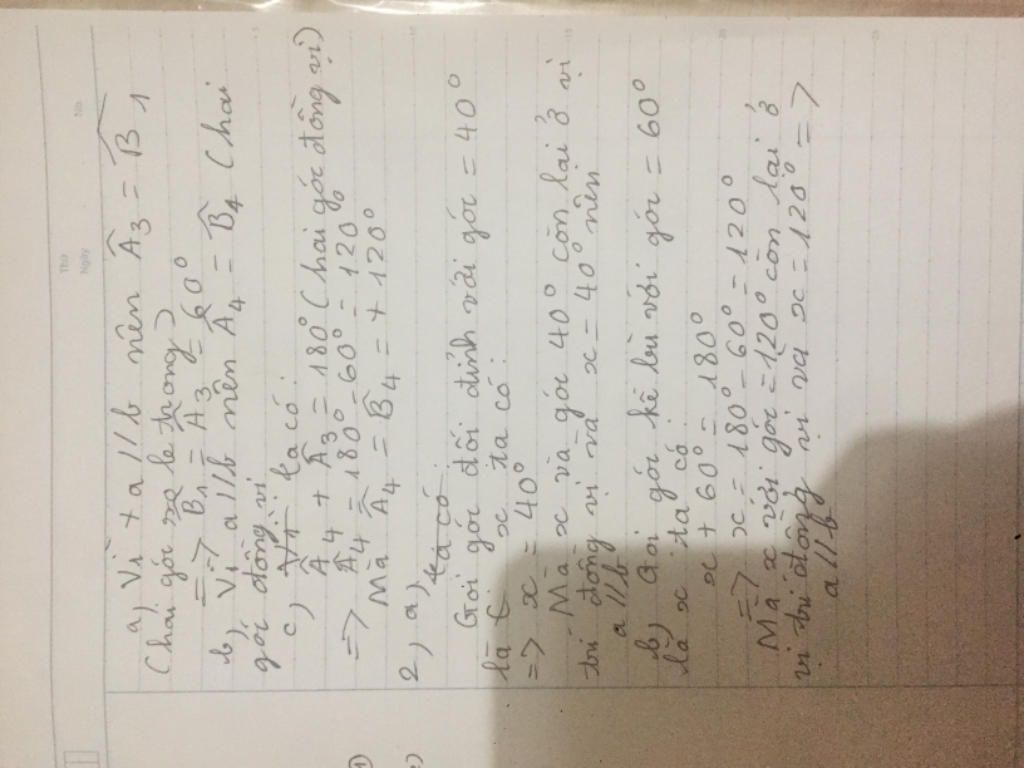 Thứ
Ngày
No.
a) Vì + a//b nên Â3 = B̂1
(hai góc so le trong)
=> B̂1 = Â3 = 60°
b) Vì a//b nên Â4 = B̂4 (hai
góc đồng vị
c) Vì ta có:
Â4 + Â3 = 180° (hai góc đồng vị)
=> Â4 = 180° - 60° = 120°
Mà Â4 = B̂4 = + 120°
2) a) ta có
Gọi góc đối đỉnh với góc = 40°
là x ta có:
=> x = 40°
Mà x và góc 40° còn lại ở vị
trí đồng vị và x = 40° nên
a//b
b) Gọi góc kề bù với góc = 60°
là x ta có
x + 60° = 180°
=> x = 180° - 60° = 120°
Mà x với góc = 120° còn lại ở
vị trí đồng vị và x = 120° =>
a//b
1)